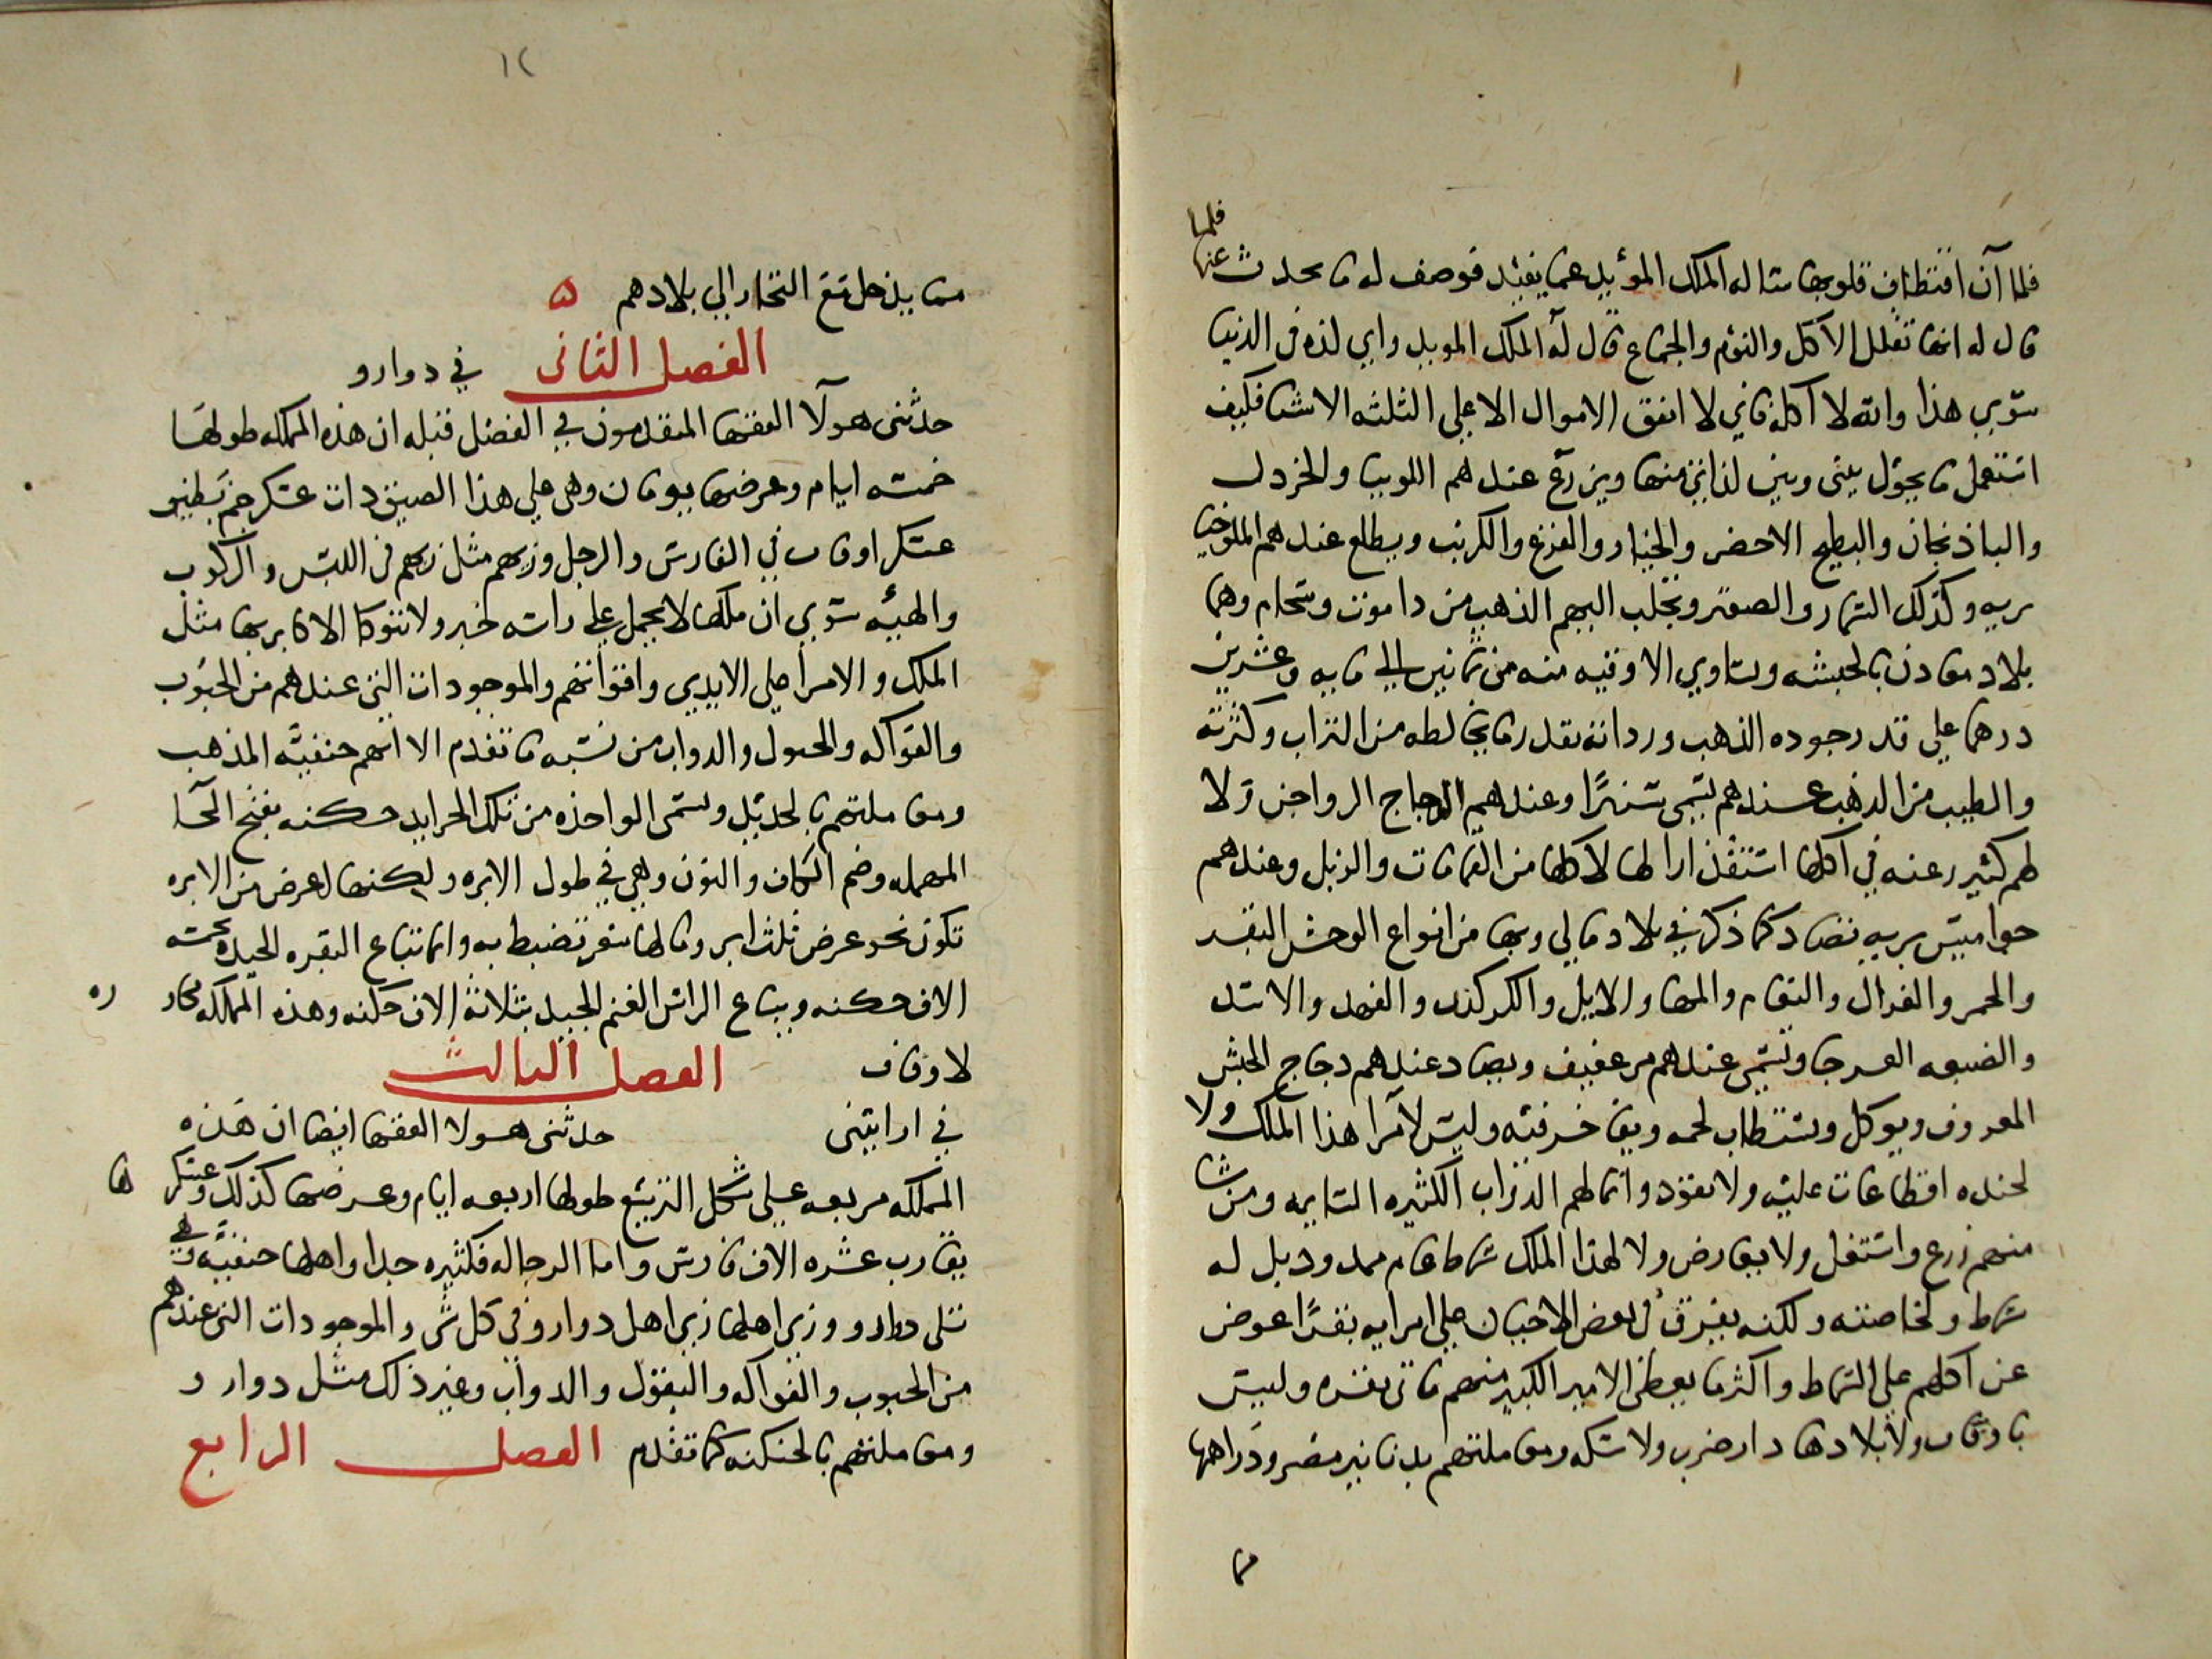 فلما آن اقتطاف قلوبها ساله الملك المؤيد عما يفيد فوصف له ما يحدث عنها
فلما
قال له انها تقلل الاكل والنوم والجماع قال له الملك المويد واي لذه في الدنيا
سوي هذا والله لا آكله فاني لا انفق الاموال الا علي الثلثه الاشيا فكيف
استعمل ما يحول بيني وبين لذاتي منها ويزرع عندهم اللوبيا والخردل
والباذنجان والبطيخ الاخضر والخيار والقرع والكرنب ويطلع عندهم الملوخيا
بريه وكذلك الشمار والصعتر ويجلب اليهم الذهب من داموت وسحام وهما
بلاد معادن بالحبشه وتساوي الاوقيه منه من ثمانين الي مايه وعشرين
درهما علي قدر جوده الذهب ورداته بقدر ما يخالطه من التراب وكثرته
والطيب من الذهب عندهم يسمي سنهرًا وعندهم الدجاج الدواجن ولا
لهم كثير رغبه في اكلها استقذارا لها لاكلها من القمامات والزبل وعندهم
جواميس بريه تصاد كما ذكر في بلاد مالي وبها من انواع الوحش البقر
والحمر والغزال والنعام والمها والايل والكركند والفهد والاسد
والضبعه العرجا وتسمي عندهم مرعفيف ويصاد عندهم دجاج الحبش
المعروف ويوكل ويستطاب لحمه وبقا خرفيه وليس لامرا هذا الملك ولا
لجنده اقطاعات عليه ولا نقود وانما لهم الدواب الكثيره السايمه ومن شا
منهم زرع واستغل ولا يعارض ولا لهذا الملك سماط عام ممدود بل له
سماط ولخاصته ولكنه يفرق في بعض الاحيان علي امرايه بقرًا عوض
عن اكلهم علي السماط واكثر ما يعطي الامير الكبير منهم ماتي بقره وليس
باوفات ولا بلادها دار ضرب ولا سكه ومعاملتهم بدنانير مصر ودراهمها
١٢
مما يدخل مع التجار الي بلادهم ه
الفصل الثاني في دوارو
حدثني هولا الفقها المتقدمون في الفصل قبله ان هذه المملكه طولها
خمسه ايام وعرضها يومان وهي علي هذا الضيق ذات عسكر جم نظير
عسكر اوفات في الفارس والرجل وزيهم مثل زيهم في اللبس والركوب
والهيئه سوي ان ملكها لا يحمل علي راسه خبر ولا تتوكا الاكابر بها مثل
الملك والامرا علي الايدي واقواتهم والموجودات التي عندهم من الحبوب
والفواكه والخيول والدواب من نسبه ما تقدم الا انهم حنفيه المذهب
ومعاملتهم بالحديد وتسمي الواحده من تلك الحدايد حكنه بفتح الحا
المهمله وضم الكاف والنون وهي في طول الابره ولكنها اعرض من الابره
تكون نحو عرض ثلث ابر وما لها سعر تضبط به وانما تباع البقره الجيده بخمسه
الاف حكنه ويباع الراس الغنم الجيد بثلاثه الاف حكنه وهذه المملكه مجاوره
لاوفات الفصل الثالث
في ارابيني حدثني هولا الفقها ايضا ان هذه
المملكه مربعه علي شكل التربيع طولها اربعه ايام وعرضها كذلك وعسكرها
يقارب عشره الاف فارس واما الرجاله فكثيره جدا واهلها حنفيه وهي
تلي دوارو وزي اهلها زي اهل دوارو في كل شي والموجودات التي عندهم
من الحبوب والفواكه والبقول والدواب وغير ذلك مثل دوارو
ومعاملتهم بالحنكنه كما تقدم الفصل الرابع